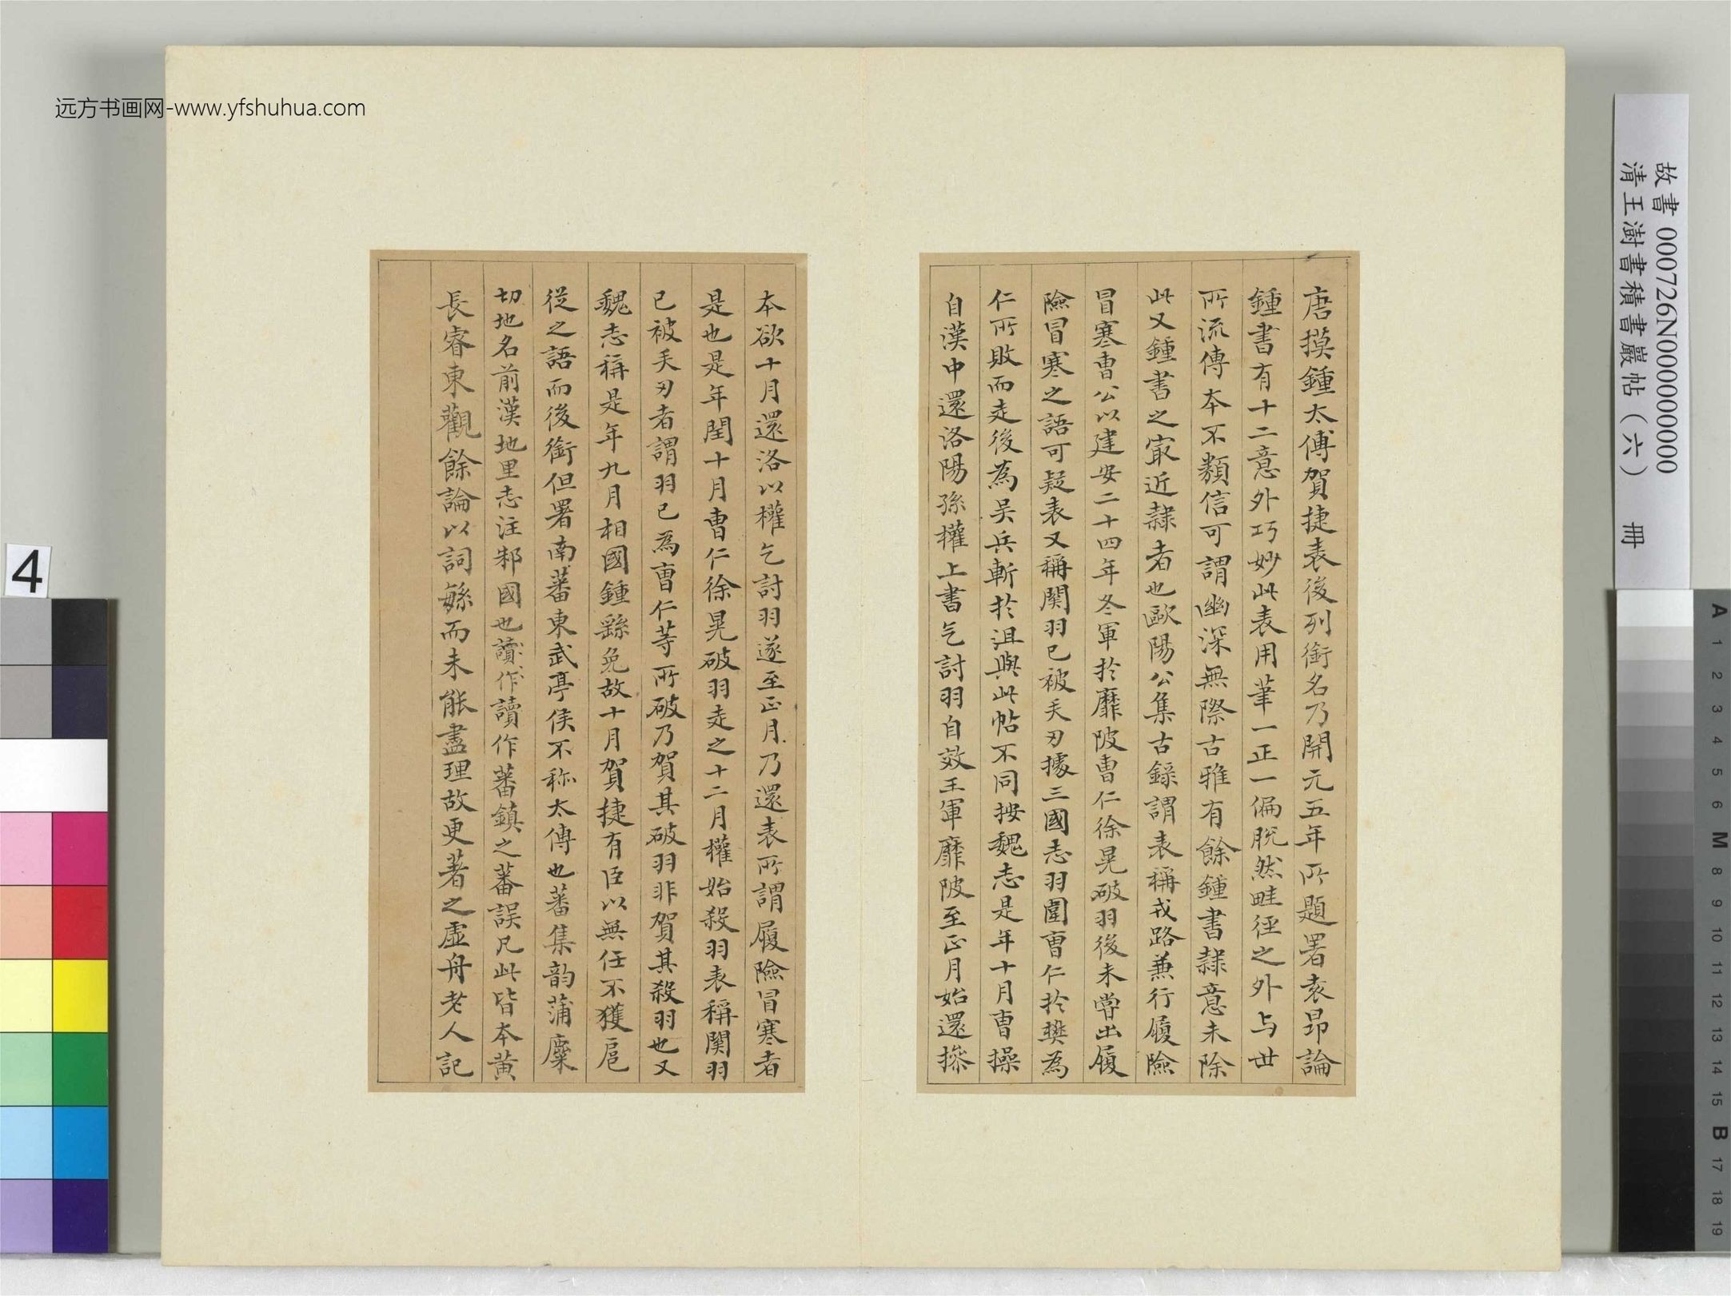 远方书画网-www.yfshuhua.com
故書 000726N000000000
清王澍書積書巖帖（六） 冊
唐摸鍾太傅賀捷表後列銜名乃開元五年所題署袁昂論
鍾書有十二意外巧妙此表用筆一正一偏脫然畦徑之外与世
所流傳本不類信可謂幽深無際古雅有餘鍾書隸意未除
此又鍾書之㝡近隸者也歐陽公集古錄謂表稱戎路兼行履險
冒寒曹公以建安二十四年冬軍於靡陂曹仁徐晃破羽後未嘗出履
險冒寒之語可疑表又稱関羽已被矢刃據三國志羽圍曹仁於樊為
仁所敗而走後為吴兵斬於沮與此帖不同按魏志是年十月曹操
自漢中還洛陽孫權上書乞討羽自效王軍靡陂至正月始還操
本欲十月還洛以權乞討羽遂至正月乃還表所謂履險冒寒者
是也是年閏十月曹仁徐晃破羽走之十二月權始殺羽表稱関羽
已被矢刃者謂羽已為曹仁等所破乃賀其破羽非賀其殺羽也又
魏志稱是年九月相國鍾繇免故十月賀捷有臣以無任不獲扈
從之語而後銜但署南蕃東武亭侯不称太傅也蕃集韵蒲糜
切地名前漢地里志注邾國也讀作讀作蕃鎮之蕃誤凡此皆本黃
長睿東觀餘論以詞繇而未能盡理故更著之虛舟老人記
4
A 1 2 3 4 5 6 M 8 9 10 11 12 13 14 15 B 17 18 19